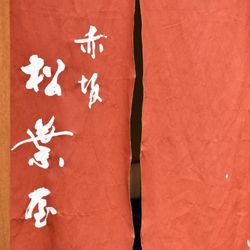 赤坂
松葉屋